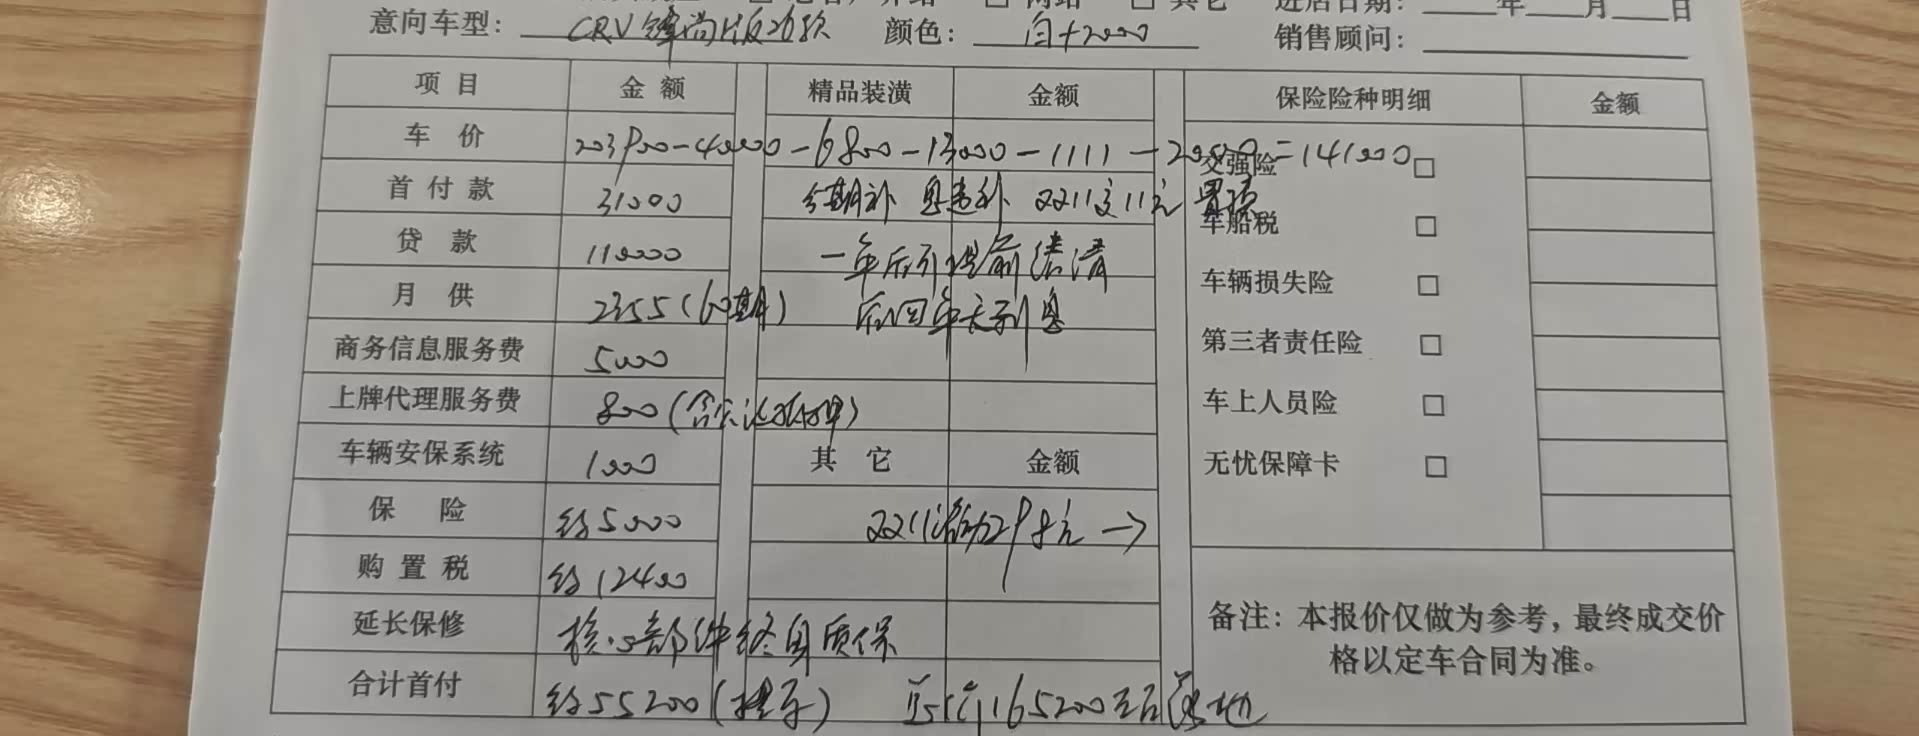 意向车型: CRV锋尚版26款 颜色: 白+2000 销售顾问:
进店日期: 年 月 日
项目 金额 精品装潢 金额 保险险种明细 金额
车价 203900-40000-6800-13000-1111-2000=141000
交强险 □
首付款 31000 分期补 息表补 2211交11元 置换
车船税 □
贷款 110000 一年后可提前结清
车辆损失险 □
月供 2355(60期) 后四年无利息
第三者责任险 □
商务信息服务费 5000
上牌代理服务费 800
车上人员险 □
车辆安保系统 1000 其它 金额
无忧保障卡 □
保险 约5000 2211
购置税 约12400
延长保修 核心部件终身质保
备注: 本报价仅做为参考,最终成交价
格以定车合同为准。
合计首付 约55200(提车) 165200左右落地